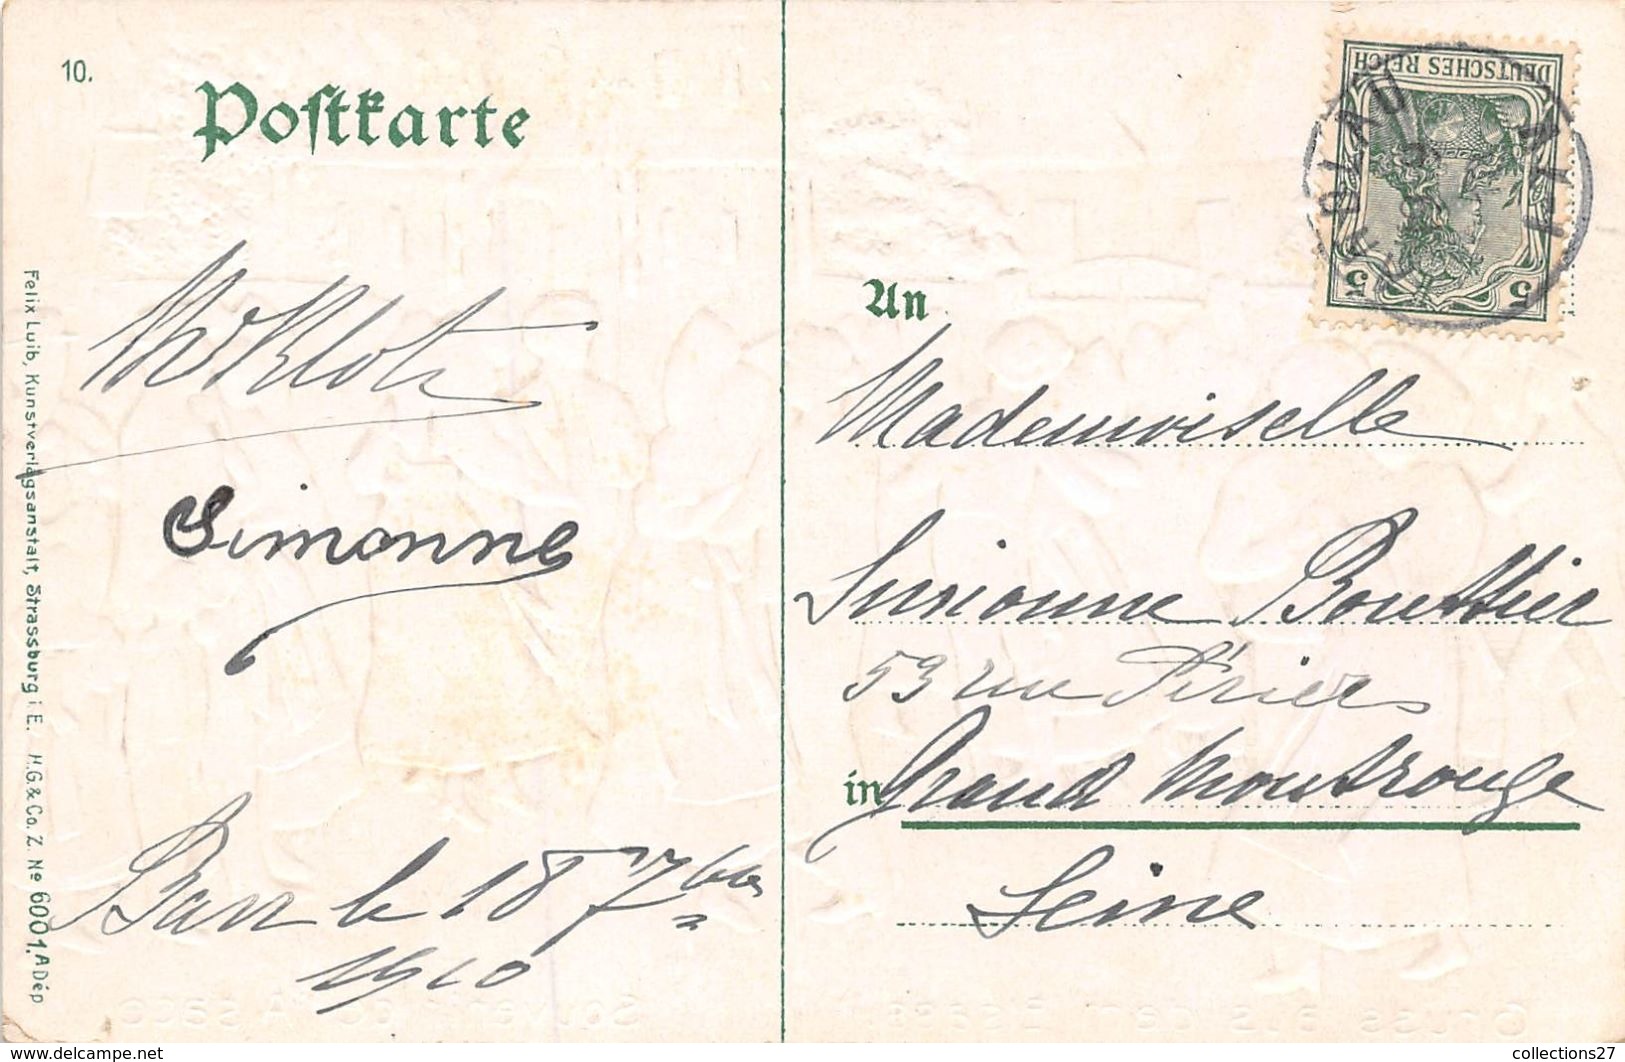 10.
Postkarte
Felix Luib, Kunstverlagsanstalt, Strassburg i. E. H.G. & Co. Z. No 6001. A Dép
Klotz
Simonne
Barr le 18 7bre
1910
DEUTSCHES REICH
5 5
An
Mademoiselle
Simonne Bouttier
59 rue Périer
in Grand Montrouge
Seine
Souvenir de l'Alsace
Gruss aus dem Elsass
collections27